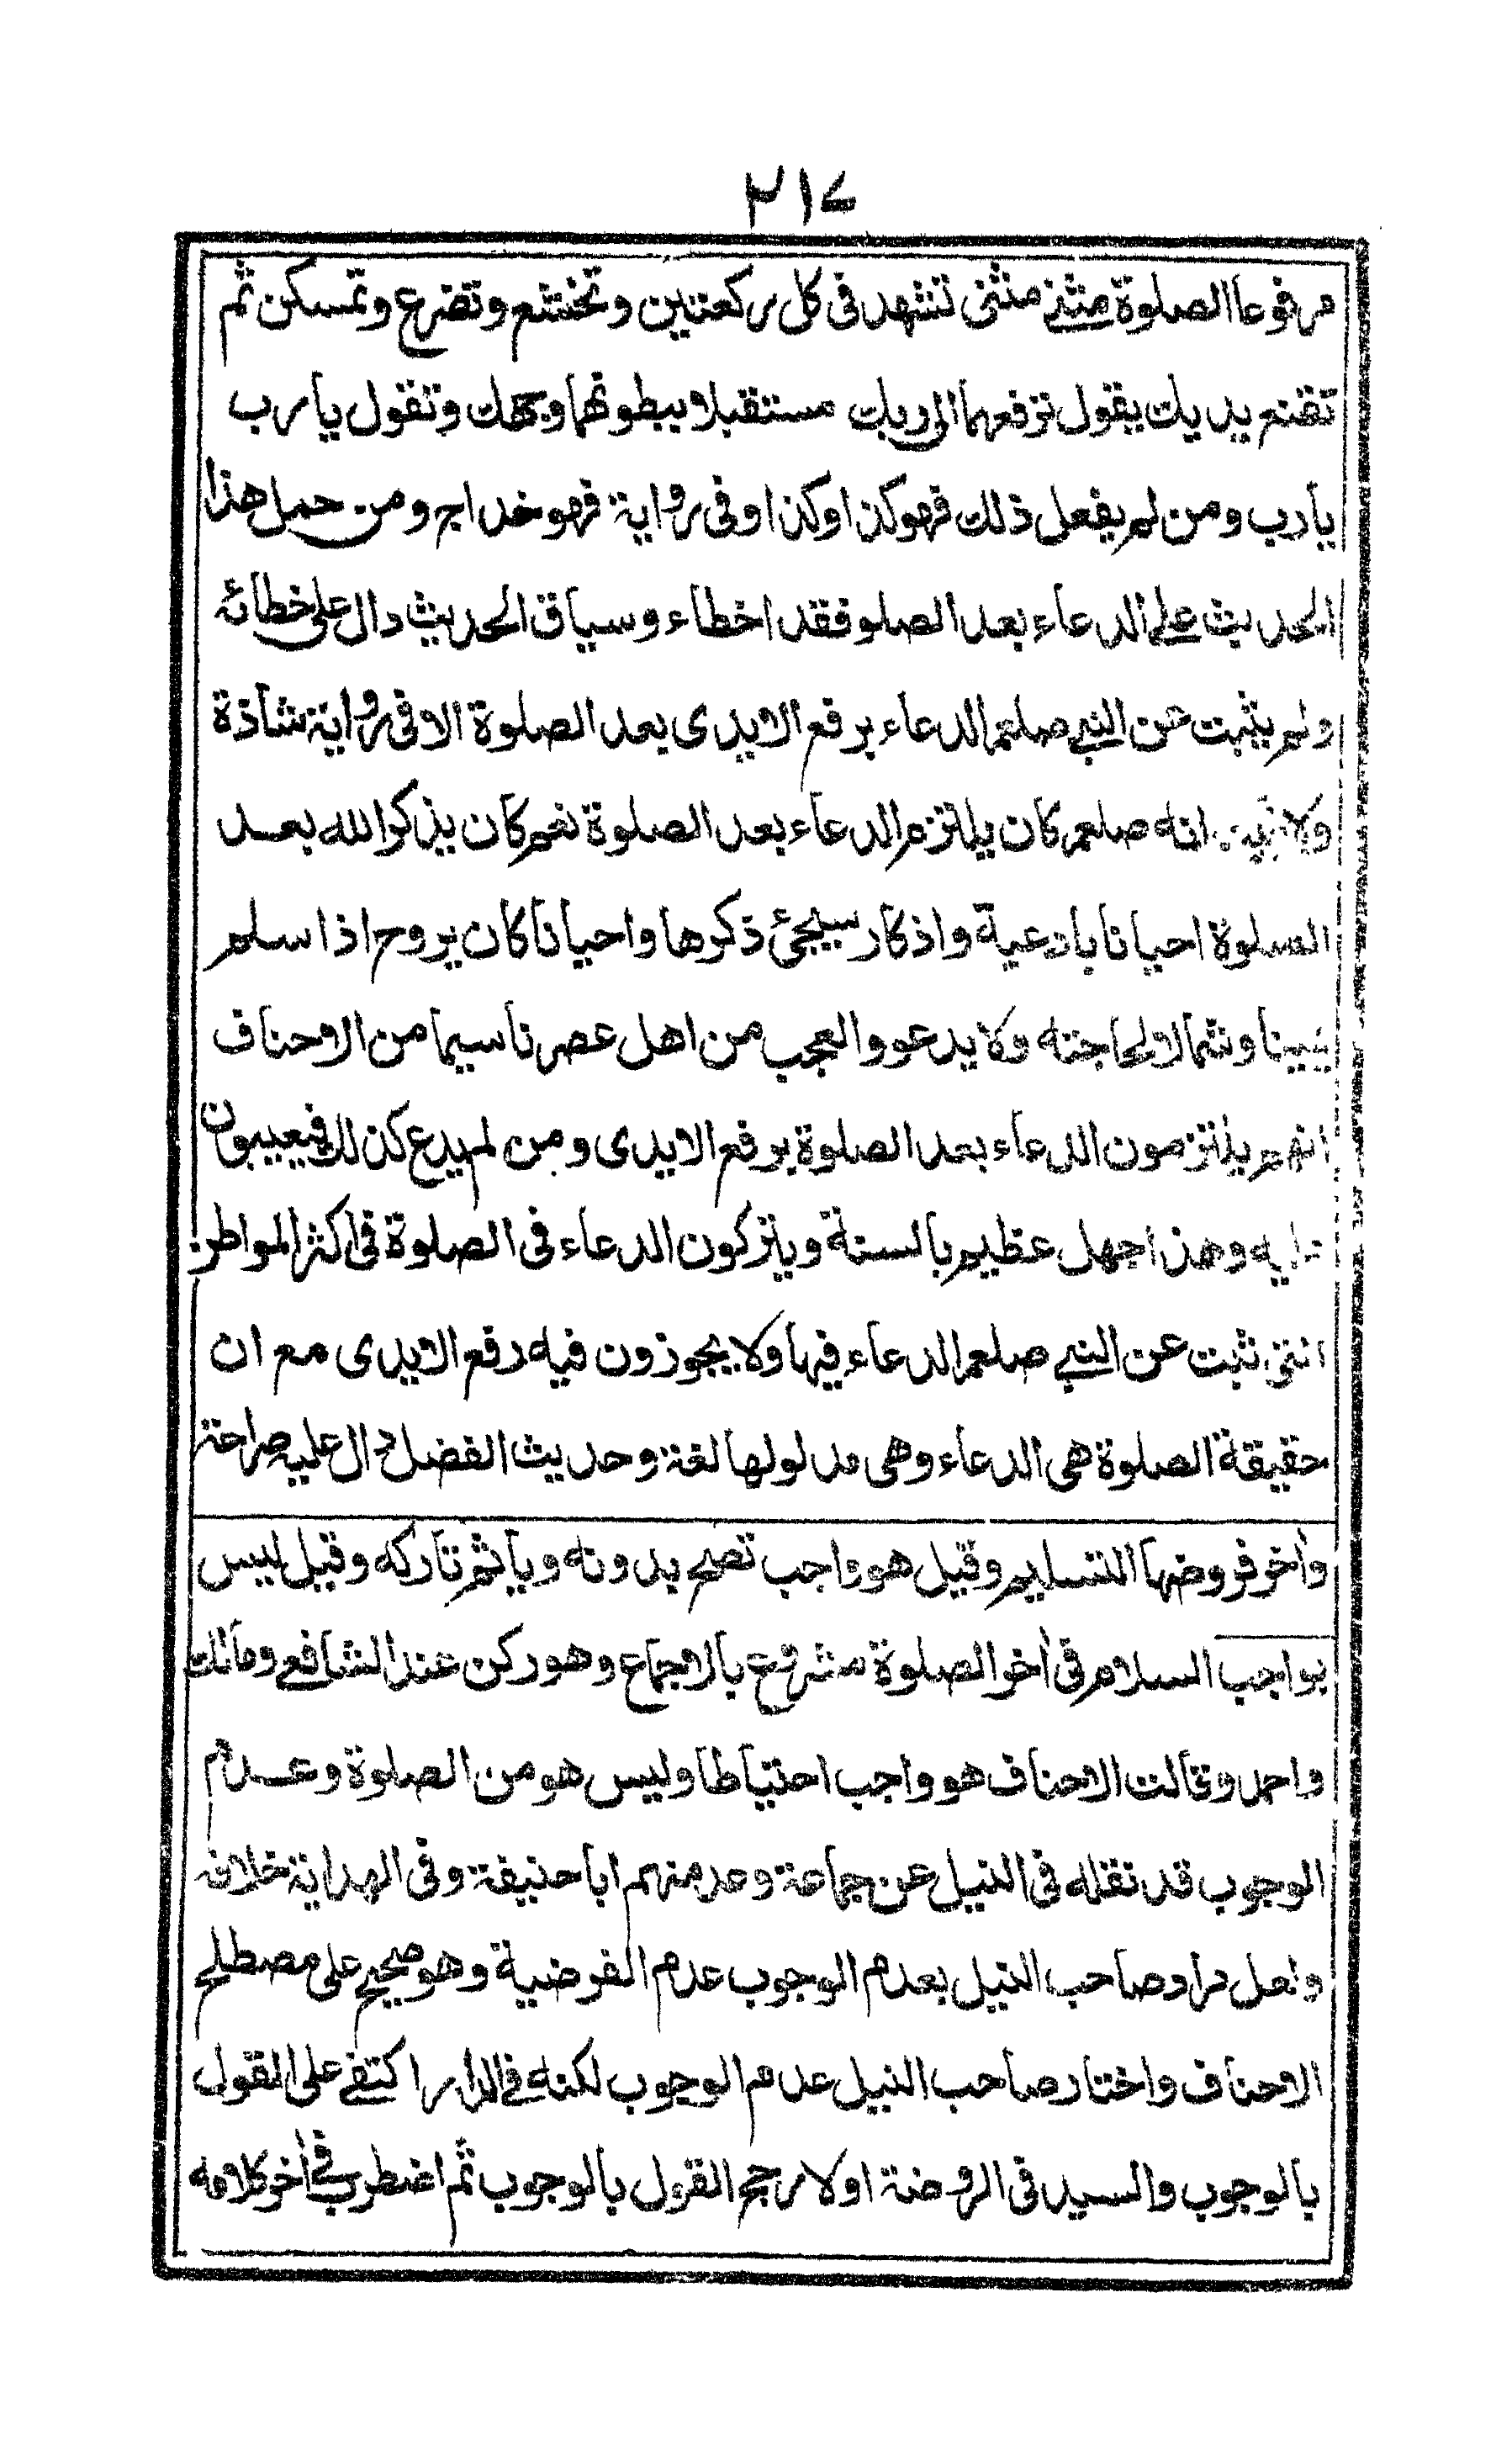 ٢١٧
مرفوعا الصلوة مثنى مثنى تشهد فى كل ركعتين وتخشع وتضرع وتمسكن ثم
تقنع يديك يقول ترفعهما الى ربك مستقبلا ببطونهما وجهك وتقول يا رب
يا رب ومن لم يفعل ذلك فهو كذا وكذا وفى رواية فهو خداج ومن حمل هذا
الحديث على الدعاء بعد الصلو فقد اخطاء وسياق الحديث دال على خطائه
ولم يثبت عن النبي صلعم الدعاء برفع الايدى بعد الصلوة الا فى رواية شاذة
ولا انه صلعم كان يلتزم الدعاء بعد الصلوة نعم كان يذكر الله بعد
الصلوة احيانا بادعية واذكار سيجئ ذكرها واحيانا كان يروح اذا سلم
يمينا وشمالا لحاجته ولا يدعو والعجب من اهل عصرنا سيما من الاحناف
انهم يلتزمون الدعاء بعد الصلوة برفع الايدى ومن لم يدع كذلك فيعيبون
عليه وهذا جهل عظيم بالسنة ويتركون الدعاء فى الصلوة فى اكثر المواطن
التى ثبت عن النبي صلعم الدعاء فيها ولا يجوزون فيه رفع الايدى مع ان
حقيقة الصلوة هى الدعاء وهى مدلولها لغة وحديث الفضل دال عليه صراحة
وأخر فروضها التسليم وقيل هو واجب تصح بدونه ويأثم تاركه وقيل ليس
بواجب السلام فى أخر الصلوة مشروع بالاجماع وهو ركن عند الشافعي ومالك
واحمد وقالت الاحناف هو واجب احتياطا وليس هو من الصلوة وعدم
الوجوب قد نقله فى النيل عن جماعة وعد منهم ابا حنيفة وفى الهداية خلافه
ولعل مراد صاحب النيل بعدم الوجوب عدم الفرضية وهو صحيح على مصطلح
الاحناف واختار صاحب النيل عدم الوجوب لكنه في الدرر اكتفى على القول
بالوجوب والسيد فى الروضة اولا رجح القول بالوجوب ثم اضطرب في أخر كلامه